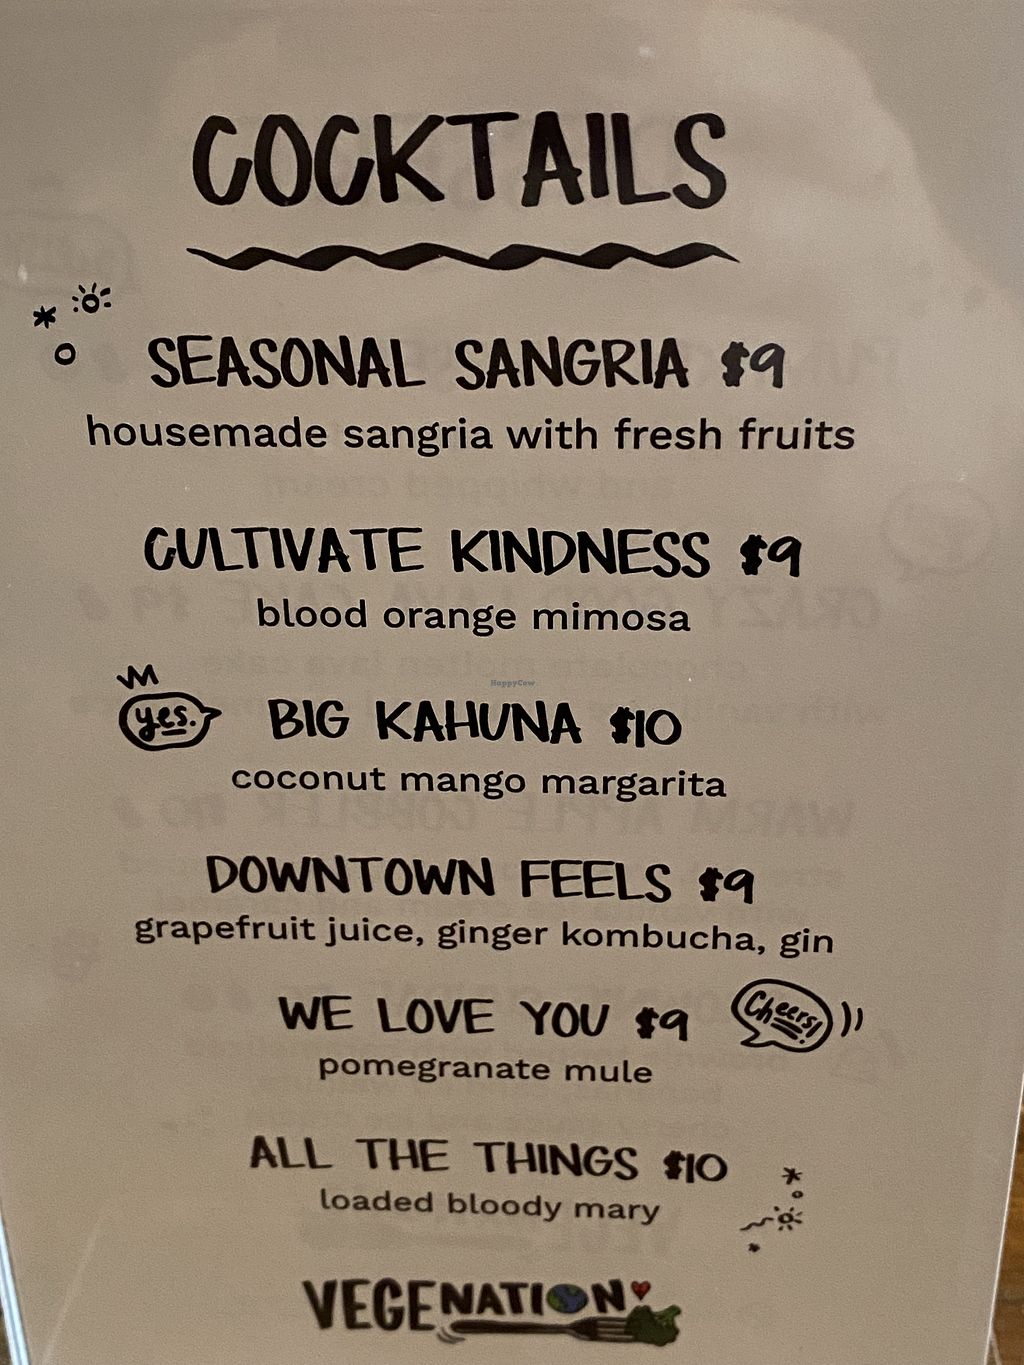 COCKTAILS
SEASONAL SANGRIA $9
housemade sangria with fresh fruits
CULTIVATE KINDNESS $9
blood orange mimosa
HappyCow
yes.
BIG KAHUNA $10
coconut mango margarita
DOWNTOWN FEELS $9
grapefruit juice, ginger kombucha, gin
WE LOVE YOU $9
Cheers!
pomegranate mule
ALL THE THINGS $10
loaded bloody mary
VEGENATION